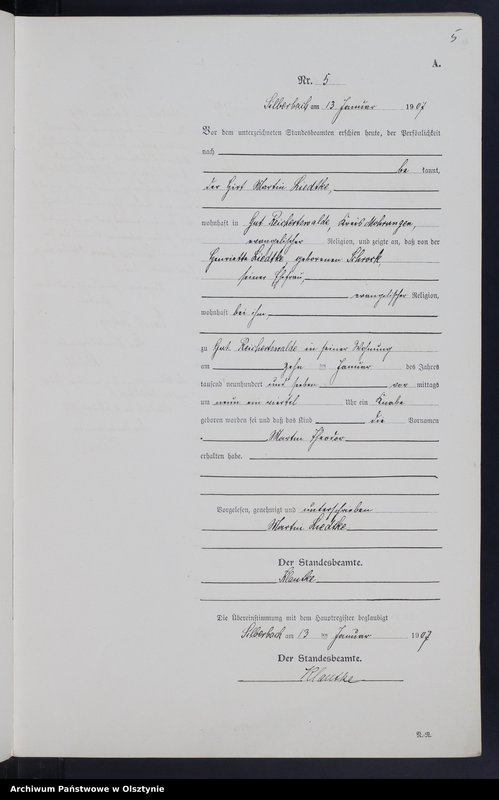 5
A.
Nr. 5
Silberbach am 13 Januar 1907
Vor dem unterzeichneten Standesbeamten erschien heute, der Persönlichkeit
nach
be kannt,
der Hirt Martin Liedtke,
wohnhaft in Gut Reichertswalde, Kreis Mohrungen,
evangelischer Religion, und zeigte an, daß von der
Henriette Liedtke, geborenen Schrock,
seiner Ehefrau,
evangelischer Religion,
wohnhaft bei ihm,
zu Gut Reichertswalde in seiner Wohnung
am zehn ten Januar des Jahres
tausend neunhundert und sieben vor mittags
um neun ein viertel Uhr ein Knabe
geboren worden sei und daß das Kind die Vornamen
Martin Theodor
erhalten habe.
Vorgelesen, genehmigt und unterschrieben
Martin Liedtke
Der Standesbeamte.
Klautke
Die Übereinstimmung mit dem Hauptregister beglaubigt
Silberbach am 13 ten Januar 1907
Der Standesbeamte.
Klautke
N.-N.
Archiwum Państwowe w Olsztynie